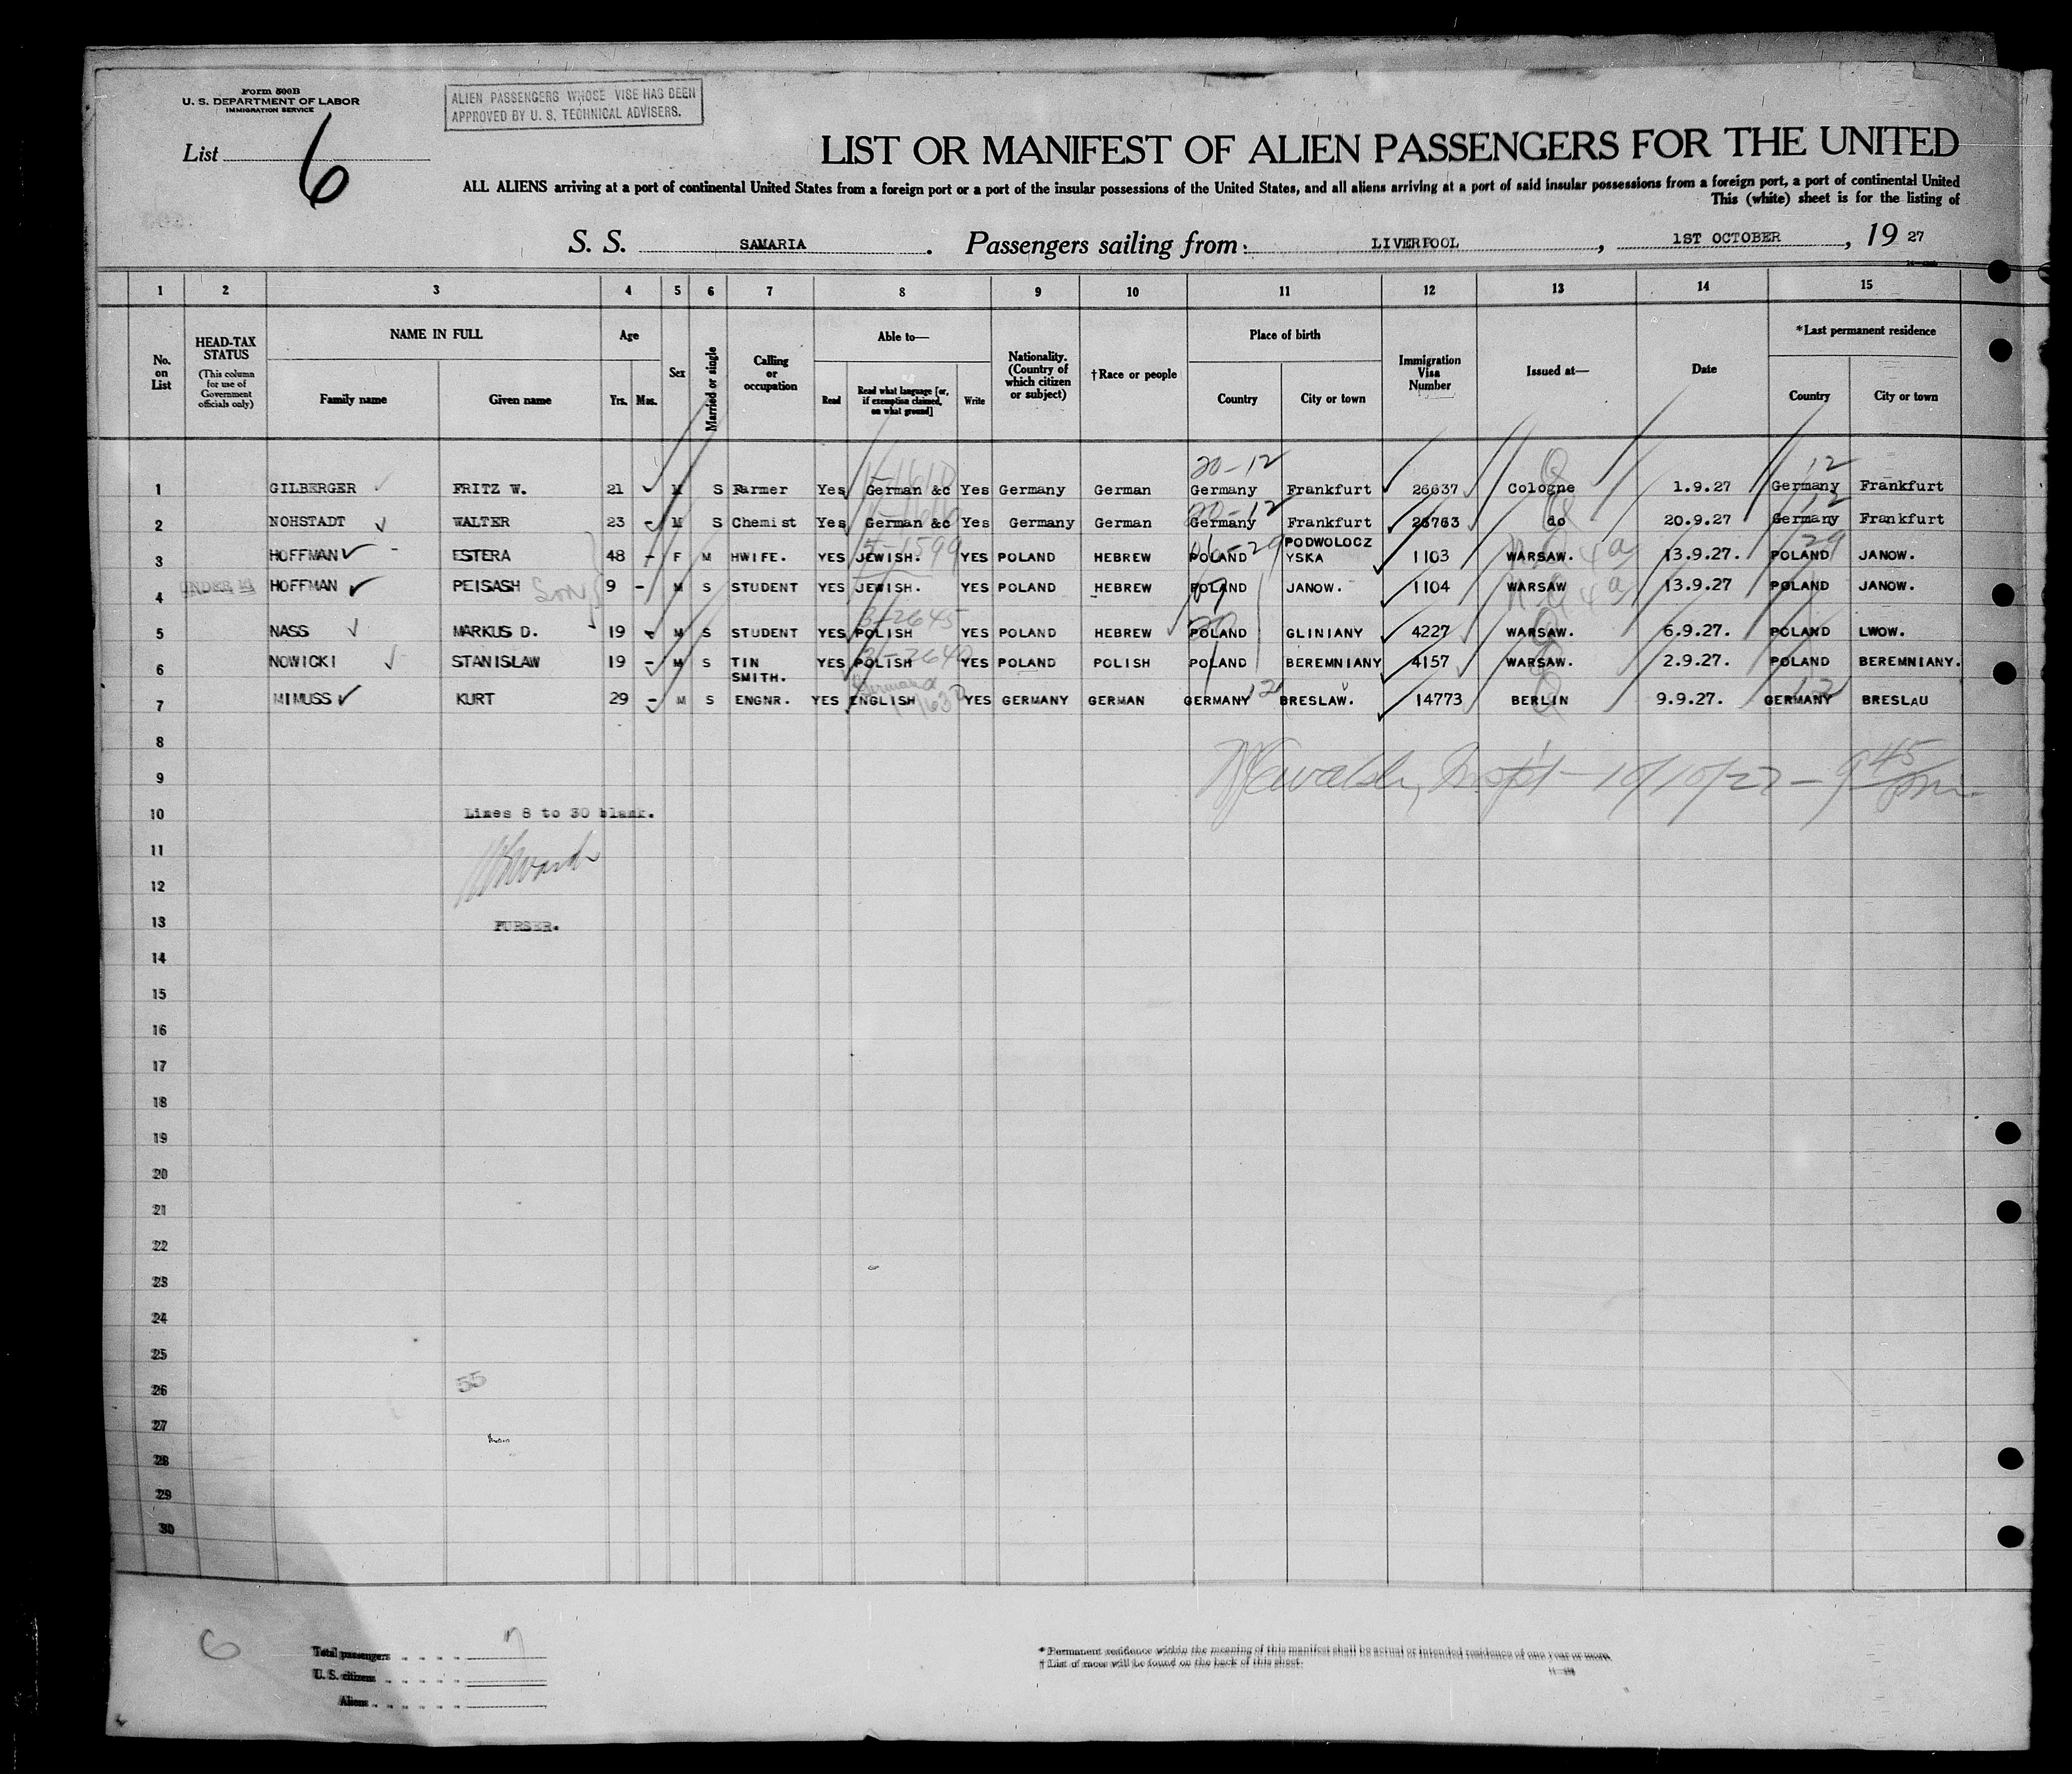 Form 500B
U. S. DEPARTMENT OF LABOR
IMMIGRATION SERVICE
ALIEN PASSENGERS WHOSE VISE HAS BEEN
APPROVED BY U. S. TECHNICAL ADVISERS.
List 6
LIST OR MANIFEST OF ALIEN PASSENGERS FOR THE UNITED
ALL ALIENS arriving at a port of continental United States from a foreign port or a port of the insular possessions of the United States, and all aliens arriving at a port of said insular possessions from a foreign port, a port of continental United
This (white) sheet is for the listing of
S. S. SAMARIA. Passengers sailing from: LIVERPOOL, 1ST OCTOBER, 19 27
1 2 3 4 5 6 7 8 9 10 11 12 13 14 15
No. on List
HEAD-TAX STATUS
(This column for use of Government officials only)
NAME IN FULL
Family name Given name
Age
Yrs. Mos.
Sex
Married or single
Calling or occupation
Able to—
Read
Read what language [or, if exemption claimed, on what ground]
Write
Nationality. (Country of which citizen or subject)
†Race or people
Place of birth
Country City or town
Immigration Visa Number
Issued at—
Date
*Last permanent residence
Country City or town
20-12 12
1 GILBERGER FRITZ W. 21 M S Farmer Yes German &c Yes Germany German Germany Frankfurt 26637 Cologne 1.9.27 Germany Frankfurt
20-12 12
2 NOHSTADT WALTER 23 - M S Chemist Yes German &c Yes Germany German Germany Frankfurt 26763 do 20.9.27 Germany Frankfurt
5-1599 29
3 HOFFMAN ESTERA 48 - F M HWIFE. YES JEWISH. YES POLAND HEBREW POLAND PODWOLOCZ YSKA 1103 WARSAW. 13.9.27. POLAND JANOW.
4 UNDER 16 HOFFMAN PEISASH Son 9 - M S STUDENT YES JEWISH. YES POLAND HEBREW POLAND JANOW. 1104 WARSAW 13.9.27 POLAND JANOW.
3-2645
5 NASS MARKUS D. 19 - M S STUDENT YES POLISH YES POLAND HEBREW POLAND GLINIANY 4227 WARSAW. 6.9.27. POLAND LWOW.
6 NOWICKI STANISLAW 19 - M S TIN SMITH. YES POLISH YES POLAND POLISH POLAND BEREMNIANY 4157 WARSAW. 2.9.27. POLAND BEREMNIANY.
German
7 MIMUSS KURT 29 - M S ENGNR. YES ENGLISH YES GERMANY GERMAN GERMANY 12 BRESLAW. 14773 BERLIN 9.9.27. GERMANY 12 BRESLAU
8
10/10/27 - 9 45 pm
9
10 Lines 8 to 30 blank.
11
12
13 PURSER.
14
15
16
17
18
19
20
21
22
23
24
25
26 55
27
28
29
30
6
Total passengers 7
U. S. citizens
Aliens
* Permanent residence within the meaning of this manifest shall be actual or intended residence of one year or more.
† List of races will be found on the back of this sheet.